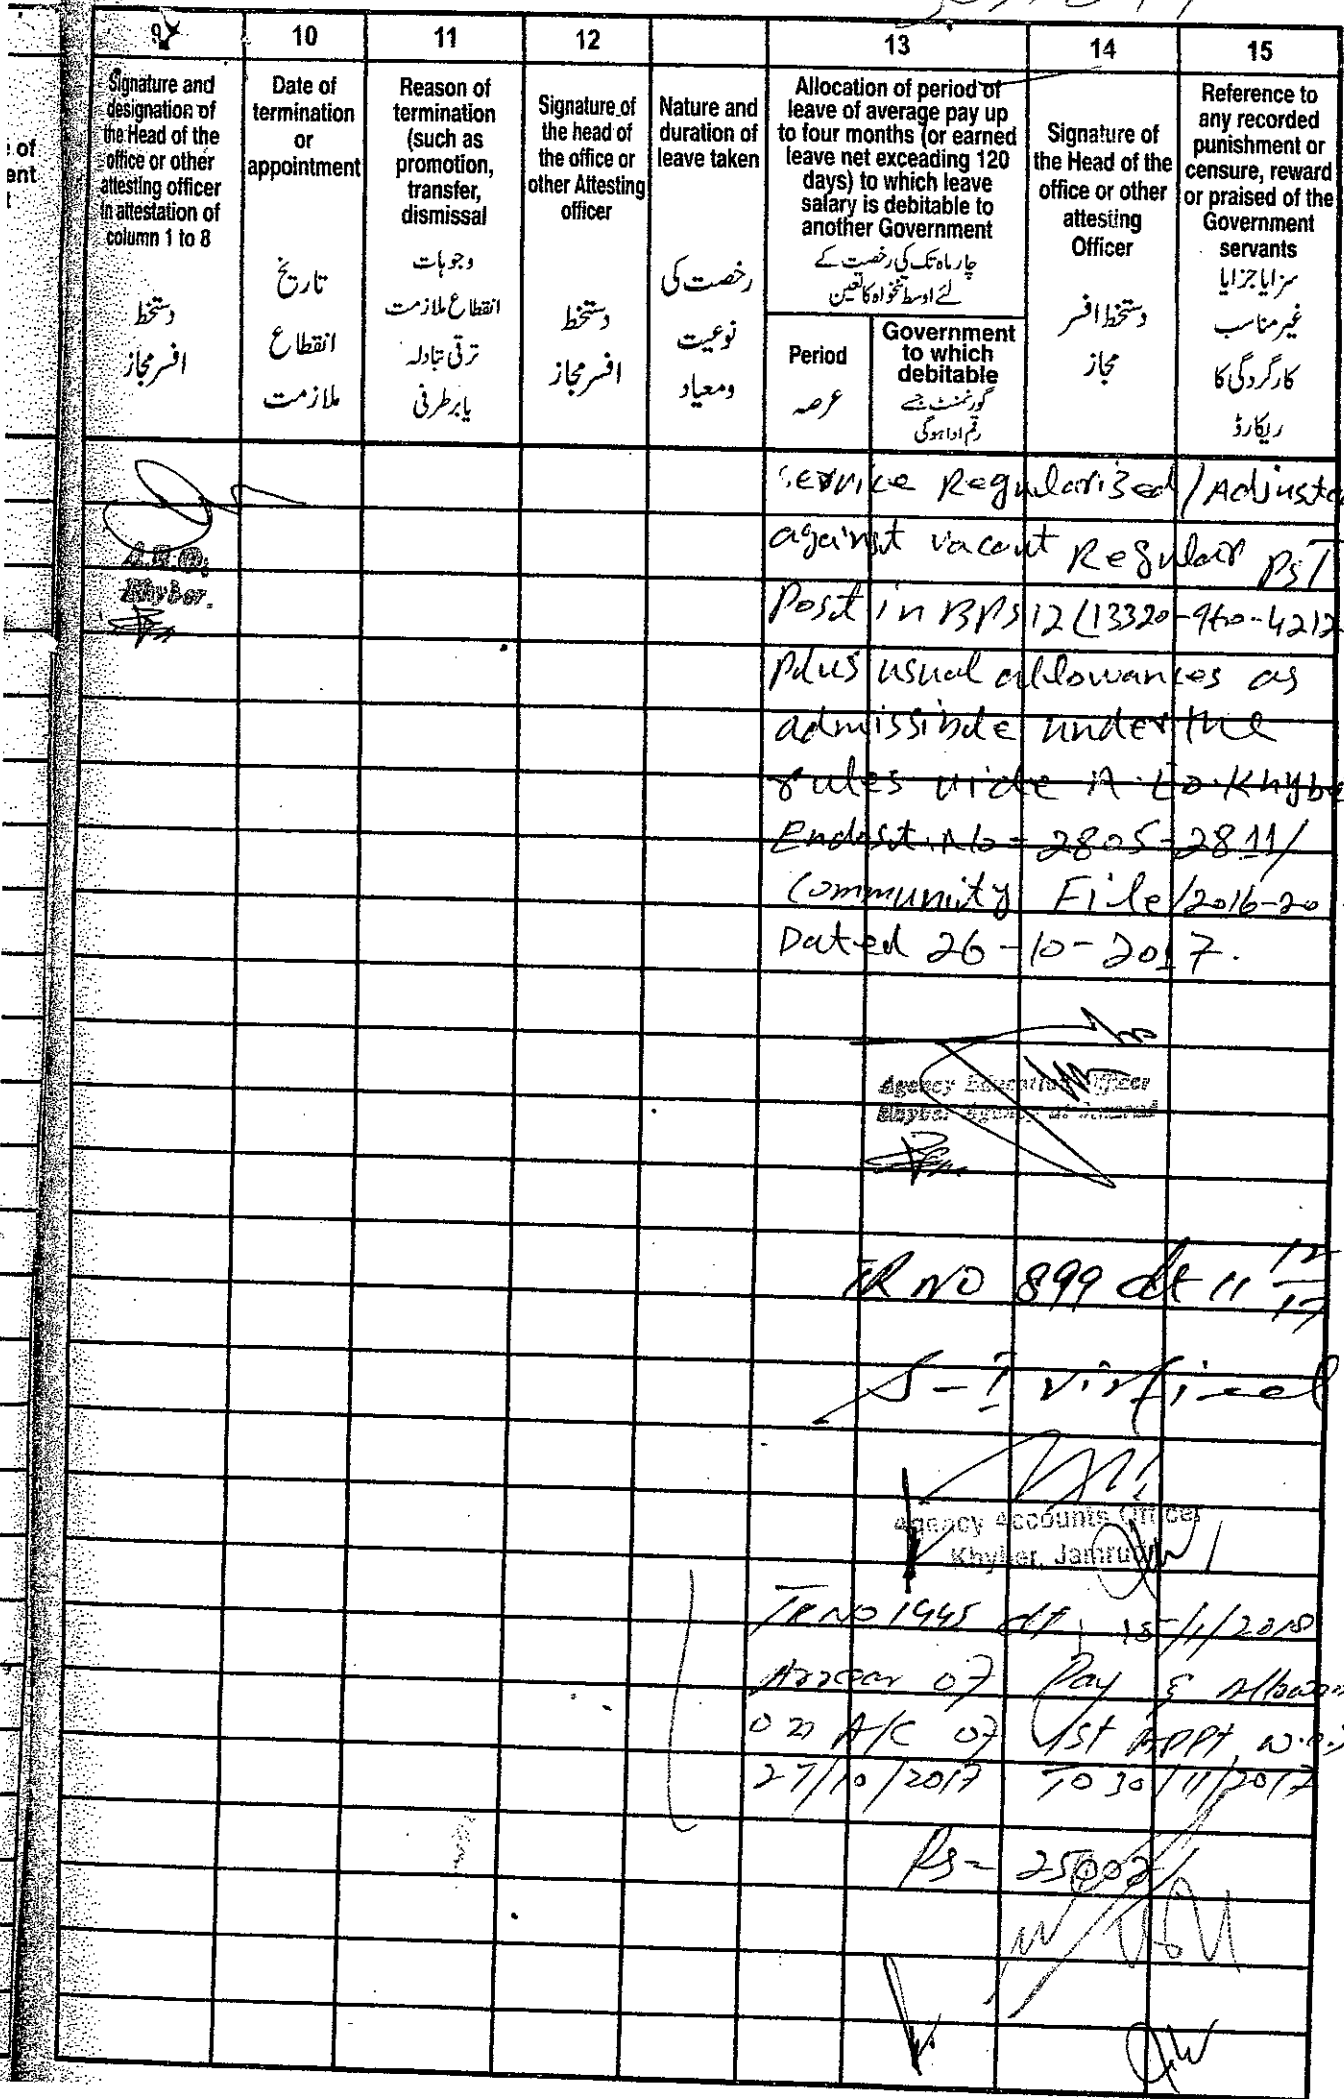 of
ent
9 10 11 12 13 14 15
Signature and designation of the Head of the office or other attesting officer in attestation of column 1 to 8
دستخط
افسر مجاز
Date of termination or appointment
تاریخ
انقطاع
ملازمت
Reason of termination (such as promotion, transfer, dismissal
وجوہات
انقطاع ملازمت
ترقی تبادلہ
یا برطرفی
Signature of the head of the office or other Attesting officer
دستخط
افسر مجاز
Nature and duration of leave taken
رخصت کی
نوعیت
ومعیاد
Allocation of period of leave of average pay up to four months (or earned leave net exceeding 120 days) to which leave salary is debitable to another Government
چار ماہ تک کی رخصت کے
لئے اوسط تنخواہ کا تعین
Period
عرصہ
Government to which debitable
گورنمنٹ جسے
رقم ادا ہوگی
Signature of the Head of the office or other attesting Officer
دستخط افسر
مجاز
Reference to any recorded punishment or censure, reward or praised of the Government servants
سزا یا جزا یا
غیر مناسب
کارگردگی کا
ریکارڈ
A.E.O.
Khyber.
Service Regularized/Adjuste
against vacant Regular PST
Post in BPS 12 (13320-960-4212
plus usual allowances as
admissible under the
rules vide A.E.O. Khybe
Endost. No = 2805-2811/
Community File/2016-20
Dated 26-10-2017.
Agency Education Officer
Khyber Agency at Jamrud
TR NO 899 dt 11 12/17
Agency Accounts Officer
Khyber, Jamrud
TR NO 1945 dt 15/1/2018
Arrear of Pay & Allowan
on A/C of 1st Appt w.e.f
27/10/2017 To 30/11/2017
Rs = 25002/